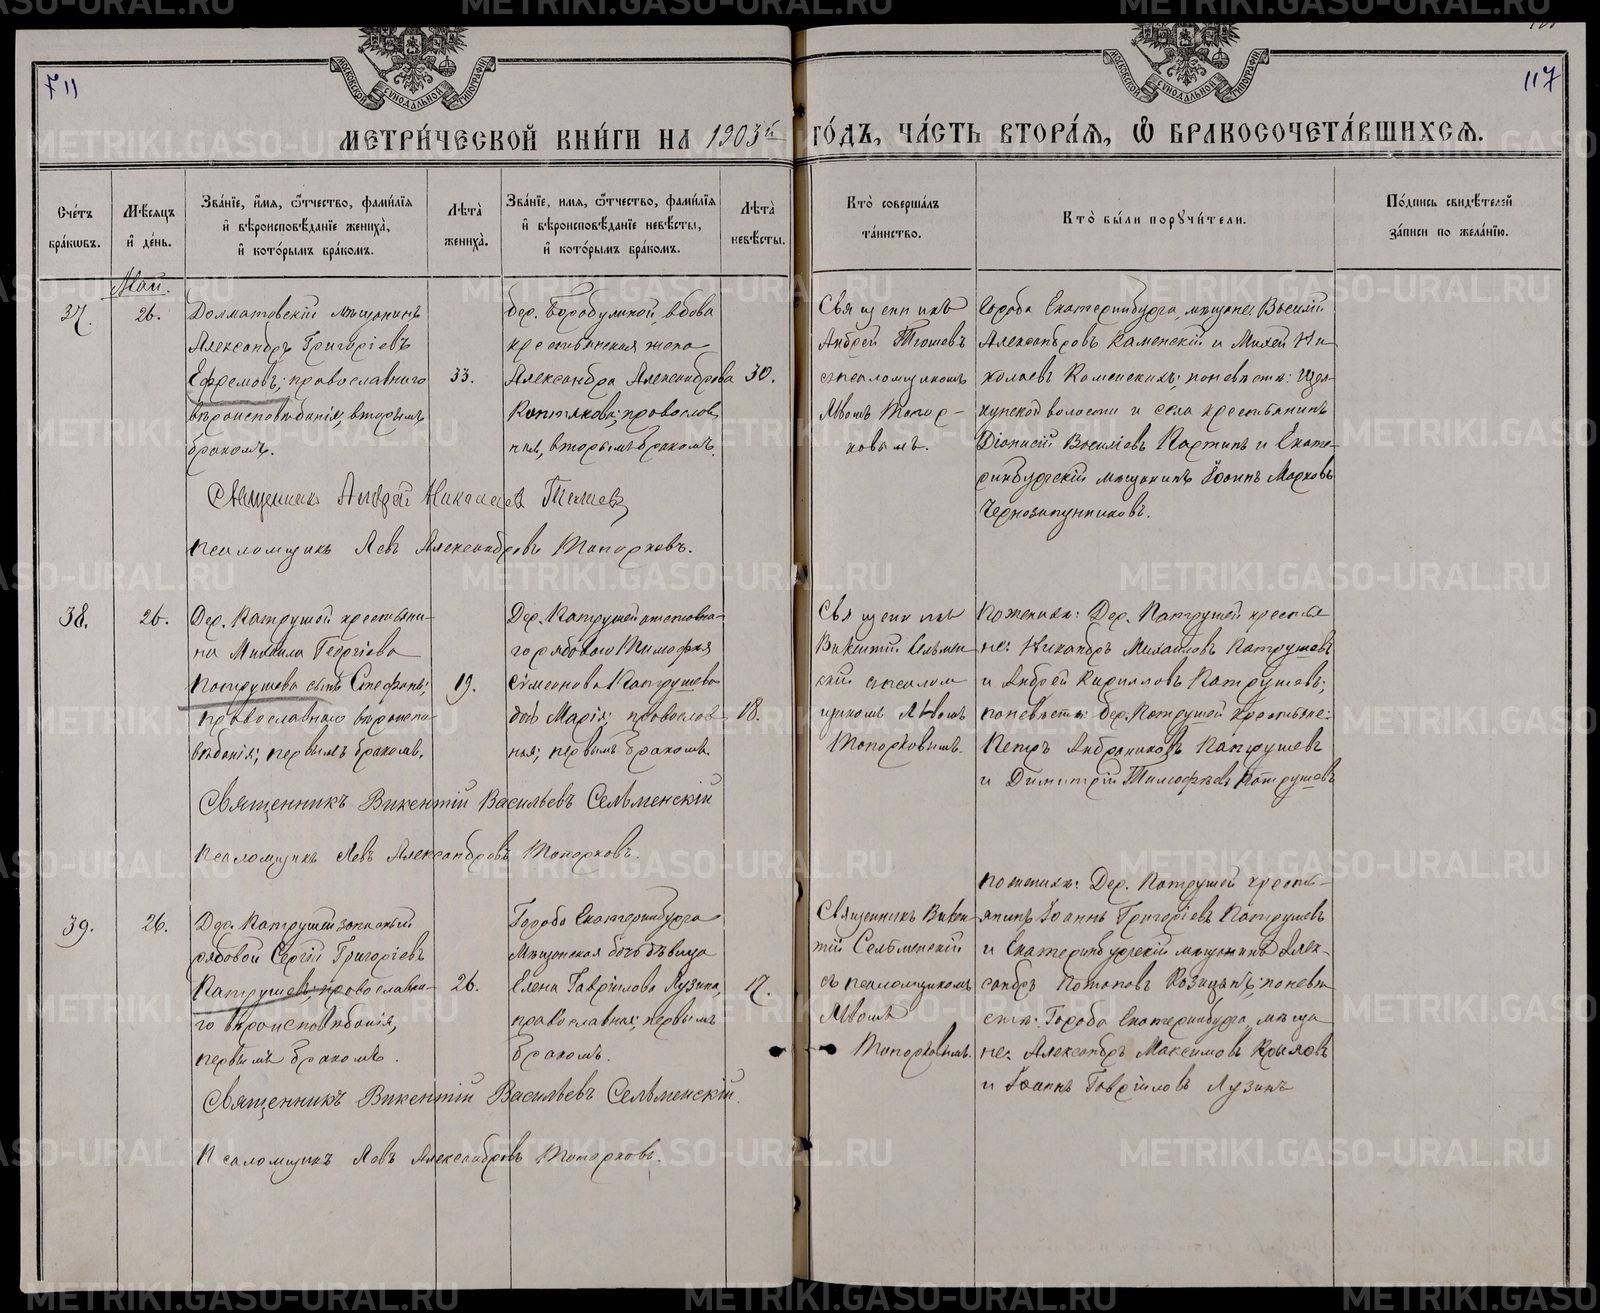 711
117
МЕТРИ́ЧЕСКОЙ КНИ́ГИ НА 1903й ГО́ДЪ, ЧА́СТЬ ВТОРА́Я, Ѽ БРАКОСОЧЕТА́ВШИХСЯ.
Сче́тъ бра́кѡвъ.
Мѣ́сяцъ и̂ де́нь.
Зва́нїе, и́мя, ѻ́тчество, фами́лїя и̂ вѣроисповѣ́данїе жениха̀, и̂ кото́рымъ бра́комъ.
Лѣта̀ жениха̀.
Зва́нїе, имя, ѻ́тчество, фами́лїя и̂ вѣроисповѣ́данїе невѣ́сты, и̂ кото́рымъ бра́комъ.
Лѣта̀ невѣ́сты.
Кто̀ соверша́лъ та́инство.
Кто̀ бы́ли порꙋчи́тели.
По́дпись свидѣ́телей за́писи по жела́нїю.
Май.
37.
26.
Долматовскій мѣщанинъ
Александръ Григоріевъ
Ефремовъ; православнаго
вѣроисповѣданія, вторымъ
бракомъ.
33.
дер. Бородулиной, вдова
крестьянская жена
Александра Александрова
православ
ная, вторымъ бракомъ.
30.
Священникъ
Андрей Тюшевъ
съ псаломщикомъ
Львомъ Топор-
ковымъ.
Города Екатеринбурга, мѣщане: Василій
Александровъ Каменскій и Ни
колаевъ Каменскихъ; по невѣстѣ: Щел-
кунской волости и села крестьянинъ
Діонисій Василіевъ Партинъ и Екате-
ринбургскій мѣщанинъ Іоаннъ Марковъ
Чернозипунниковъ.
Священникъ Андрей Николаевъ Тюшевъ
псаломщикъ Левъ Александровъ Топорковъ.
38.
26.
Дер. Патрушей крестьяни-
на Михаила Георгіева
Патрушева сынъ Стефанъ;
православнаго вѣроиспо-
вѣданія; первымъ бракомъ.
19.
Дер. Патрушей отставна-
го рядоваго Тимофея
Сѵмеонова Патрушева
дочь Марія; православ-
ная; первымъ бракомъ.
18.
Священникъ
Викентій Сельмен
скій съ псалом
щикомъ Львомъ
Топорковымъ.
По женихѣ: Дер. Патрушей крестья
не: Никандръ Михаиловъ Патрушевъ
и Андрей Кирилловъ Патрушевъ;
по невѣстѣ: дер. Патрушей крестьяне:
Петръ Андрониковъ Патрушевъ
и Димитрій Тимофеевъ Патрушевъ
Священникъ Викентій Васильевъ Сельменскій
Псаломщикъ Левъ Александровъ Топорковъ.
39.
26.
Дер. Патрушей запасный
рядовой Сергій Григоріевъ
Патрушевъ; православна-
го вѣроисповѣданія,
первымъ бракомъ.
26.
Города Екатеринбурга
Мѣщанская дочь дѣвица
Елена Гавріилова Лузина,
православная; первымъ
бракомъ.
17.
Священникъ Викен
тій Сельменскій
съ псаломщикомъ
Львомъ
Топорковымъ.
По женихѣ: Дер. Патрушей кресть-
янинъ Іоаннъ Григоріевъ Патрушевъ
и Екатеринбургскій мѣщанинъ Алек-
сандръ Потаповъ Козицынъ; по невѣ
стѣ: Города Екатеринбурга мѣща
не: Александръ Максимовъ Крыловъ
и Іоаннъ Гавріиловъ Лузинъ
Священникъ Викентій Васильевъ Сельменскій.
Псаломщикъ Левъ Александровъ Топорковъ.
METRIKI.GASO-URAL.RU